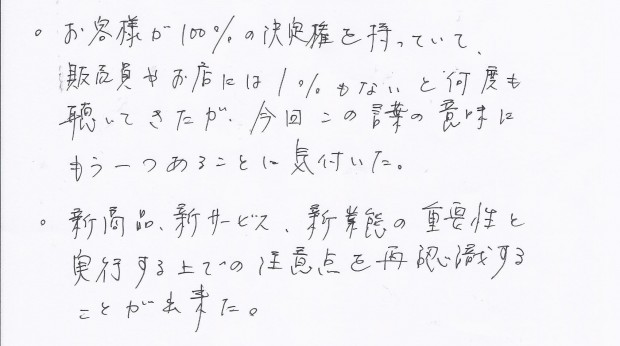 。お客様が100%の決定権を持っていて、
販売員やお店には1%もないと何度も
聴いてきたが、今回この言葉の意味に
もう一つあることに気付いた。
。新商品、新サービス、新業態の重要性と
実行する上での注意点を再認識する
ことが出来た。